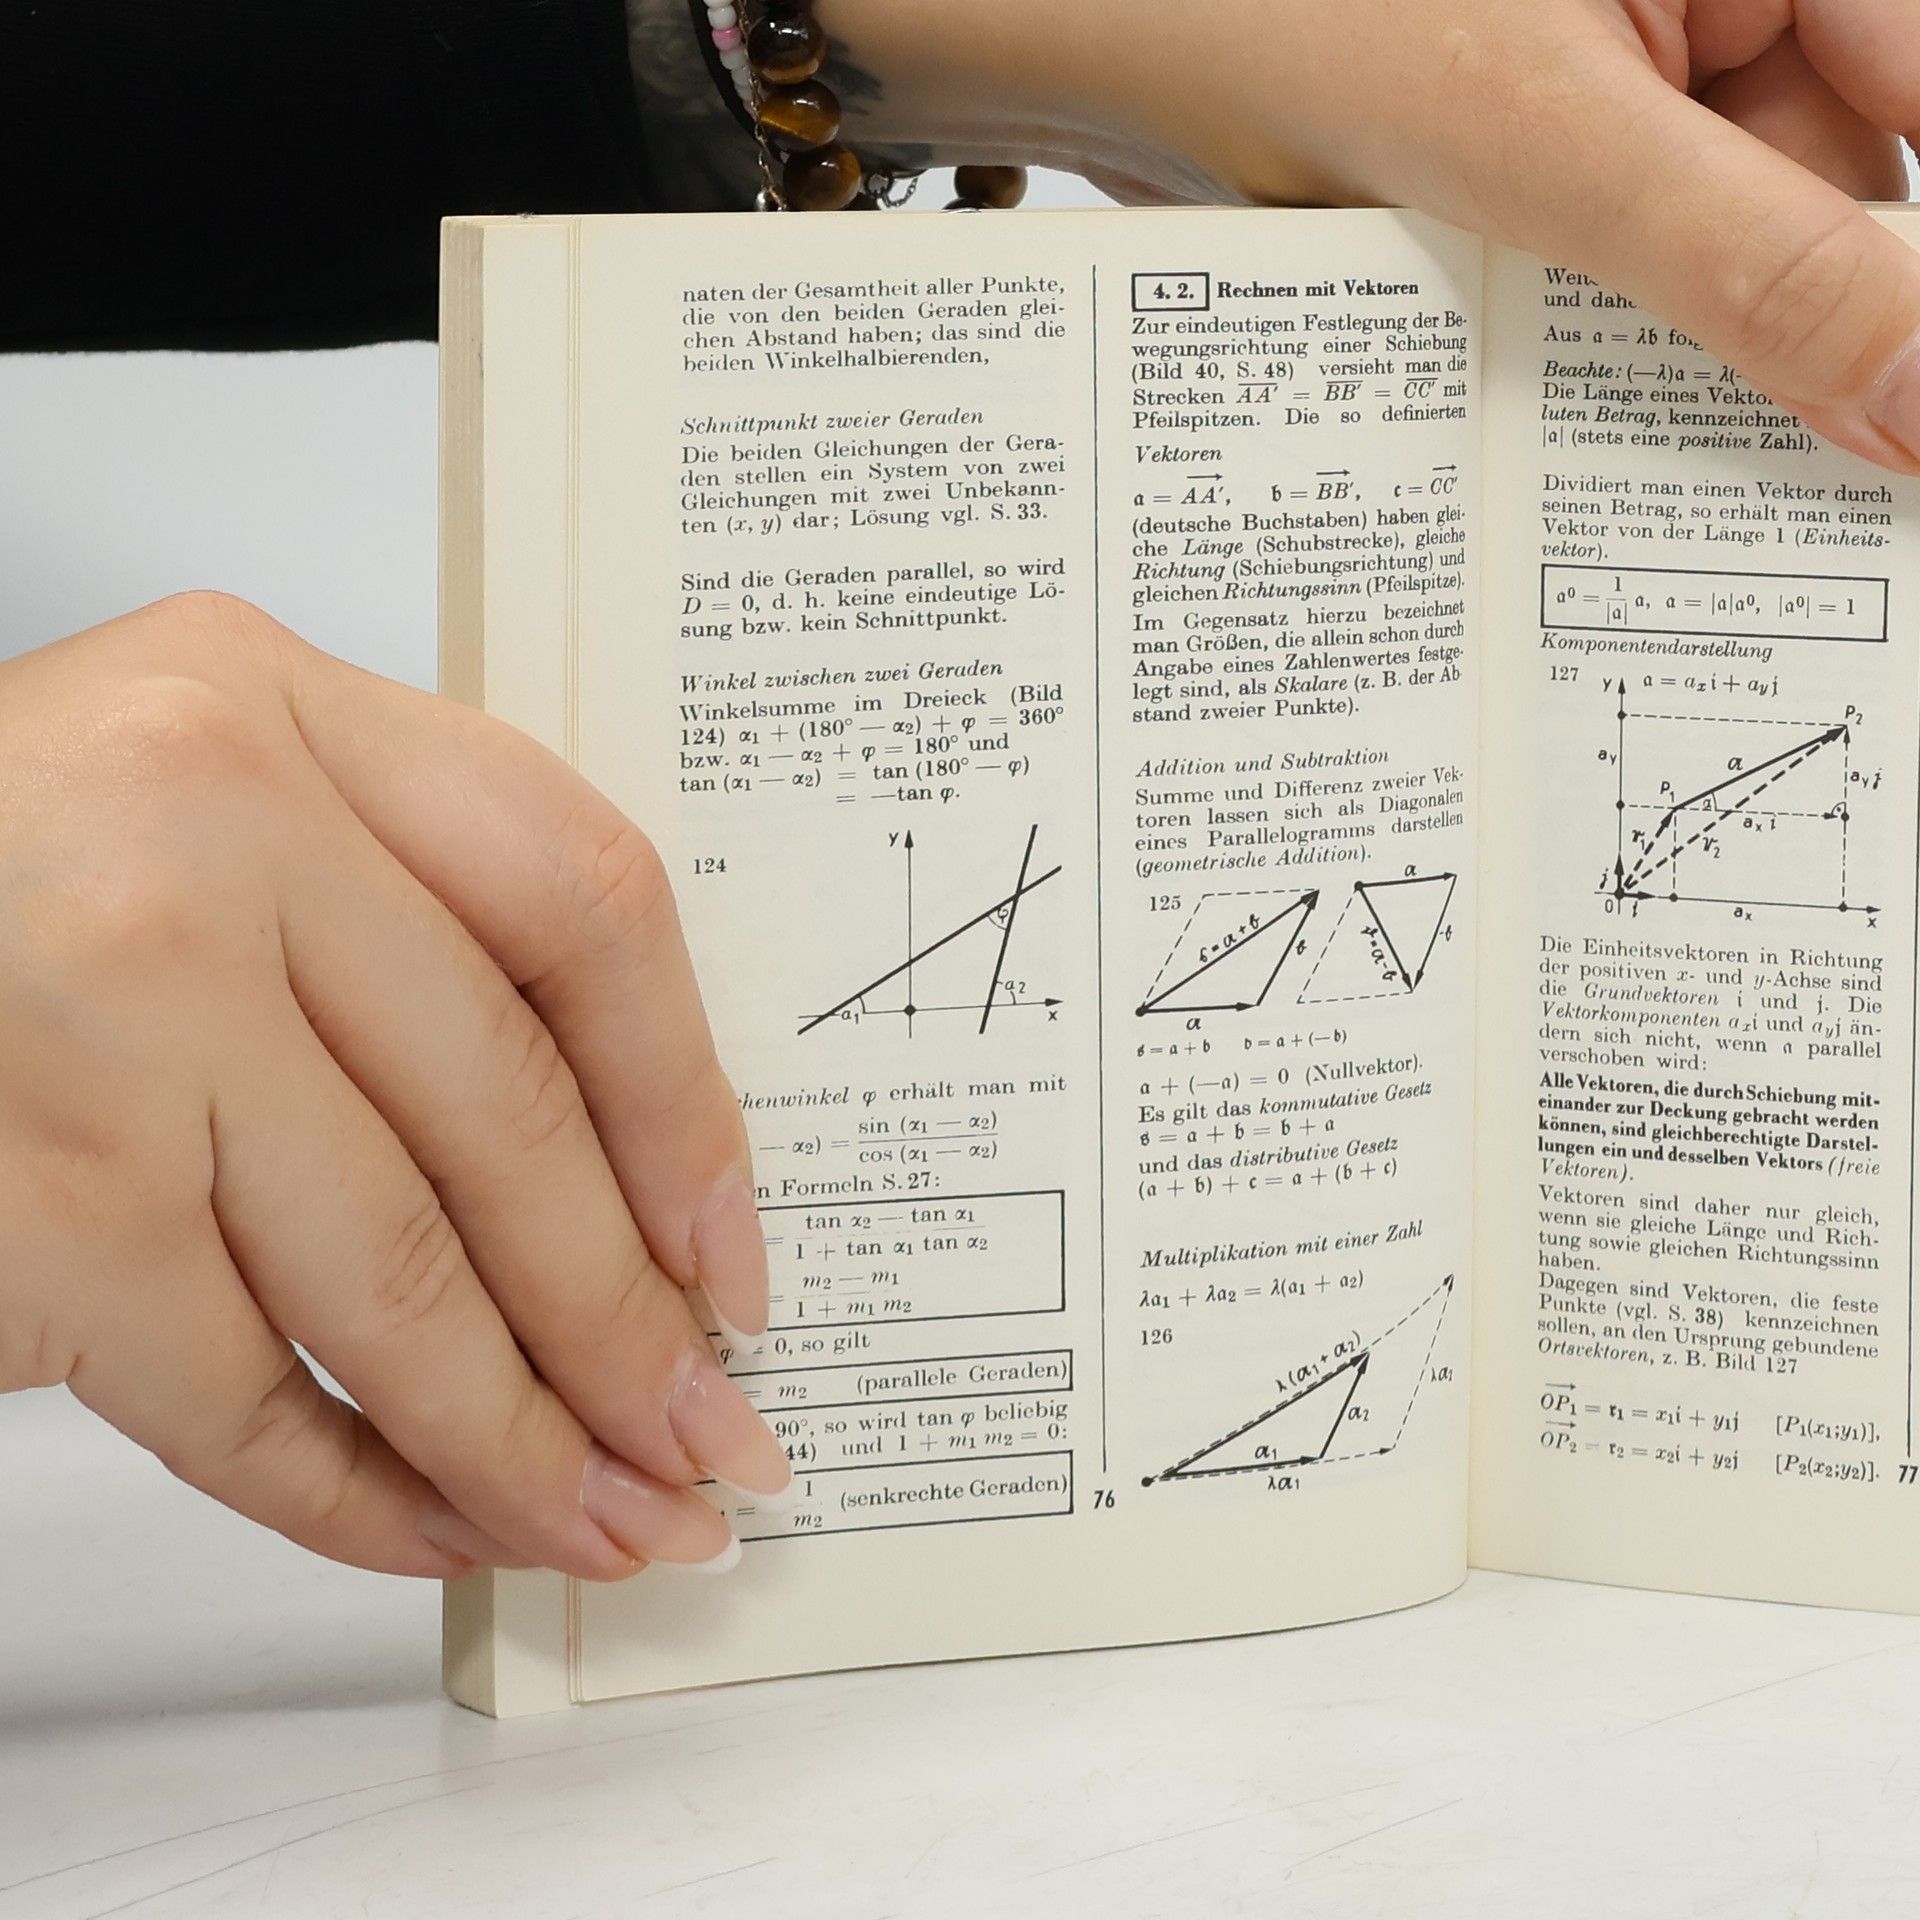 naten der Gesamtheit aller Punkte,
die von den beiden Geraden glei-
chen Abstand haben; das sind die
beiden Winkelhalbierenden,
Schnittpunkt zweier Geraden
Die beiden Gleichungen der Gera-
den stellen ein System von zwei
Gleichungen mit zwei Unbekann-
ten (x, y) dar; Lösung vgl. S. 33.
Sind die Geraden parallel, so wird
D = 0, d. h. keine eindeutige Lö-
sung bzw. kein Schnittpunkt.
Winkel zwischen zwei Geraden
Winkelsumme im Dreieck (Bild
124) α₁ + (180° — α₂) + φ = 360°
bzw. α₁ — α₂ + φ = 180° und
tan (α₁ — α₂) = tan (180° — φ)
= —tan φ.
124
y
φ
α₁
α₂
x
henwinkel φ erhält man mit
— α₂) = sin (α₁ — α₂)
cos (α₁ — α₂)
n Formeln S. 27:
= tan α₂ — tan α₁
1 + tan α₁ tan α₂
= m₂ — m₁
1 + m₁ m₂
φ = 0, so gilt
= m₂ (parallele Geraden)
90°, so wird tan φ beliebig
44) und 1 + m₁ m₂ = 0:
= 1
m₂ (senkrechte Geraden)
76
4. 2. Rechnen mit Vektoren
Zur eindeutigen Festlegung der Be-
wegungsrichtung einer Schiebung
(Bild 40, S. 48) versieht man die
Strecken AA′ = BB′ = CC′ mit
Pfeilspitzen. Die so definierten
Vektoren
𝔞 = AA′, 𝔟 = BB′, 𝔠 = CC′
(deutsche Buchstaben) haben glei-
che Länge (Schubstrecke), gleiche
Richtung (Schiebungsrichtung) und
gleichen Richtungssinn (Pfeilspitze).
Im Gegensatz hierzu bezeichnet
man Größen, die allein schon durch
Angabe eines Zahlenwertes festge-
legt sind, als Skalare (z. B. der Ab
stand zweier Punkte).
Addition und Subtraktion
Summe und Differenz zweier Vek-
toren lassen sich als Diagonalen
eines Parallelogramms darstellen
(geometrische Addition).
125
𝔰 = 𝔞 + 𝔟
𝔟
𝔞
𝔞
𝔡 = 𝔞 - 𝔟
-𝔟
𝔰 = 𝔞 + 𝔟 𝔡 = 𝔞 + (—𝔟)
𝔞 + (—𝔞) = 0 (Nullvektor).
Es gilt das kommutative Gesetz
𝔰 = 𝔞 + 𝔟 = 𝔟 + 𝔞
und das distributive Gesetz
(𝔞 + 𝔟) + 𝔠 = 𝔞 + (𝔟 + 𝔠)
Multiplikation mit einer Zahl
λ𝔞₁ + λ𝔞₂ = λ(𝔞₁ + 𝔞₂)
126
λ(𝔞₁ + 𝔞₂)
λ𝔞₂
𝔞₂
𝔞₁
λ𝔞₁
und
Aus 𝔞 = λ𝔟
Beachte: (—λ)𝔞 = λ(-
Die Länge eines
luten Betrag, kennzeichnet
|𝔞| (stets eine positive Zahl).
Dividiert man einen Vektor durch
seinen Betrag, so erhält man einen
Vektor von der Länge 1 (Einheits-
vektor).
𝔞⁰ = 1/|𝔞| 𝔞, 𝔞 = |𝔞|𝔞⁰, |𝔞⁰| = 1
Komponentendarstellung
127 y 𝔞 = aₓ𝔦 + a_y𝔧
P₂
a_y
𝔞
a_y 𝔧
P₁
α
aₓ 𝔦
𝔯₁
𝔯₂
𝔧
0
𝔦
aₓ
x
Die Einheitsvektoren in Richtung
der positiven x- und y-Achse sind
die Grundvektoren 𝔦 und 𝔧. Die
Vektorkomponenten aₓ𝔦 und a_y𝔧 än-
dern sich nicht, wenn 𝔞 parallel
verschoben wird:
Alle Vektoren, die durch Schiebung mit-
einander zur Deckung gebracht werden
können, sind gleichberechtigte Darstel-
lungen ein und desselben Vektors (freie
Vektoren).
Vektoren sind daher nur gleich,
wenn sie gleiche Länge und Rich-
tung sowie gleichen Richtungssinn
haben.
Dagegen sind Vektoren, die feste
Punkte (vgl. S. 38) kennzeichnen
sollen, an den Ursprung gebundene
Ortsvektoren, z. B. Bild 127
OP₁ = 𝔯₁ = x₁𝔦 + y₁𝔧 [P₁(x₁;y₁)],
OP₂ = 𝔯₂ = x₂𝔦 + y₂𝔧 [P₂(x₂;y₂)].
77